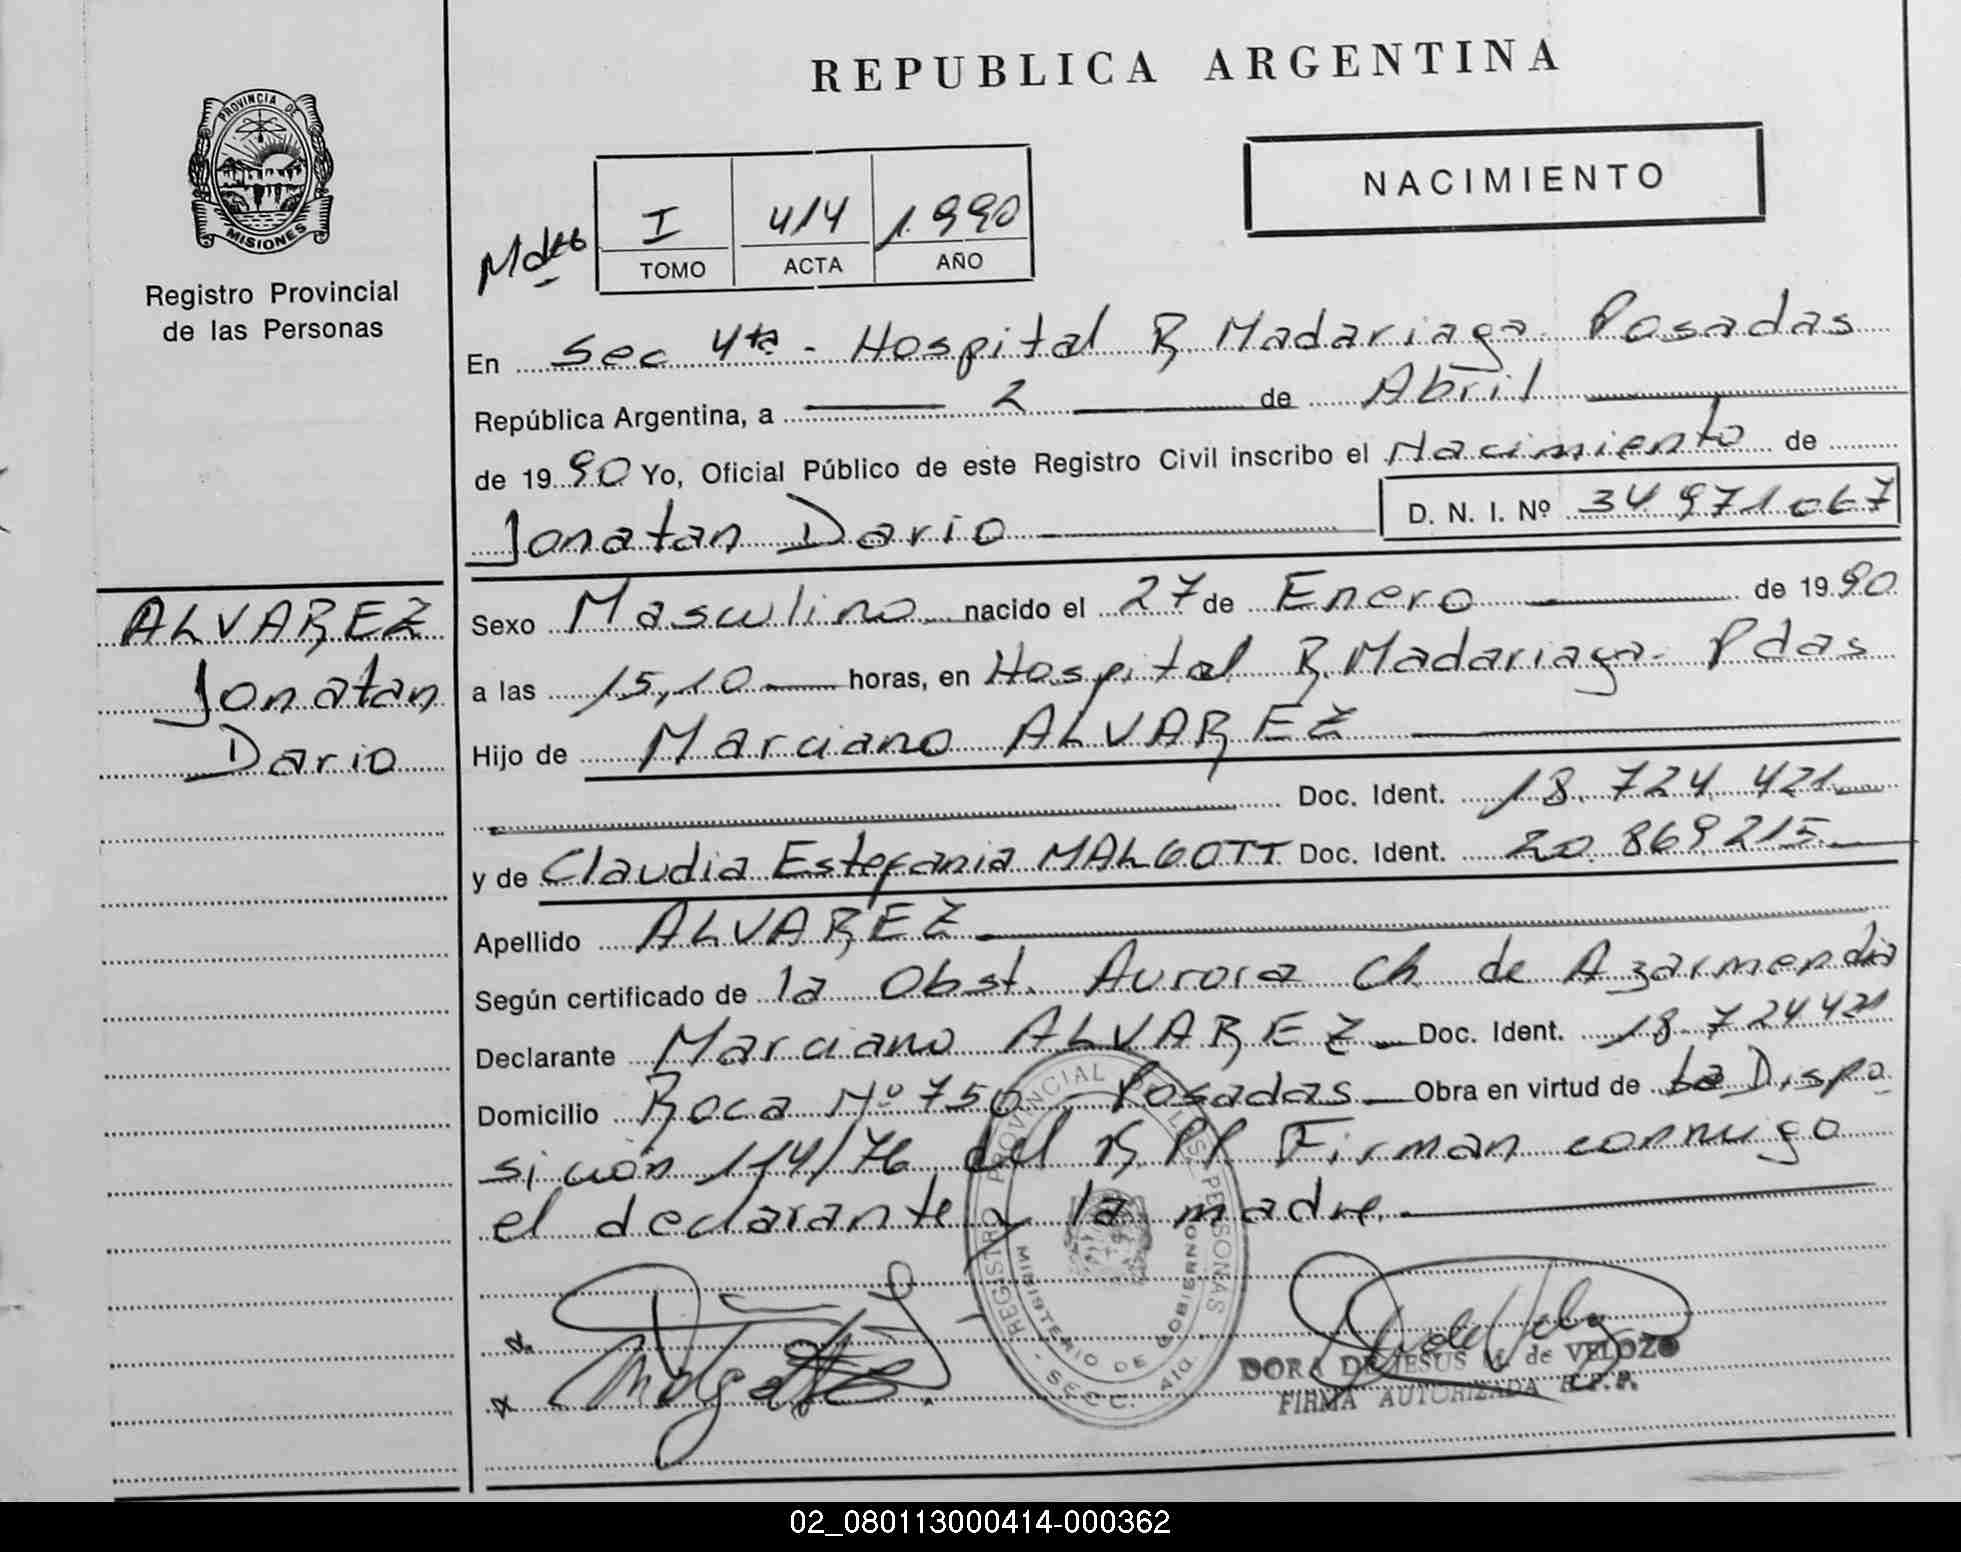 PROVINCIA DE
MISIONES
Registro Provincial
de las Personas
REPUBLICA ARGENTINA
NACIMIENTO
I 414 1.990
TOMO ACTA AÑO
En Sec 4ta - Hospital R Madariaga - Posadas
República Argentina, a 2 de Abril
de 1990 Yo, Oficial Público de este Registro Civil inscribo el Nacimiento de
Jonatan Dario D. N. I. Nº 34 971 067
ALVAREZ
Jonatan
Dario
Sexo Masculino nacido el 27 de Enero de 1990
a las 15,10 horas, en Hospital R. Madariaga - Pdas
Hijo de Marciano ALVAREZ
Doc. Ident. 18.724.421
y de Claudia Estefania MALGOTT Doc. Ident. 20.869.215
Apellido ALVAREZ
Según certificado de la Obst. Aurora Ch de Azarmendia
Declarante Marciano ALVAREZ Doc. Ident. 18.724421
Domicilio Roca Nº 750 Posadas Obra en virtud de la Dispo
sición 114/76 del R.P.P. Firman conmigo
el declarante y la madre
REGISTRO PROVINCIAL DE LAS PERSONAS
MINISTERIO DE GOBIERNO
DORA DE JESUS M. de VELOZO
FIRMA AUTORIZADA R.P.P.
02_080113000414-000362